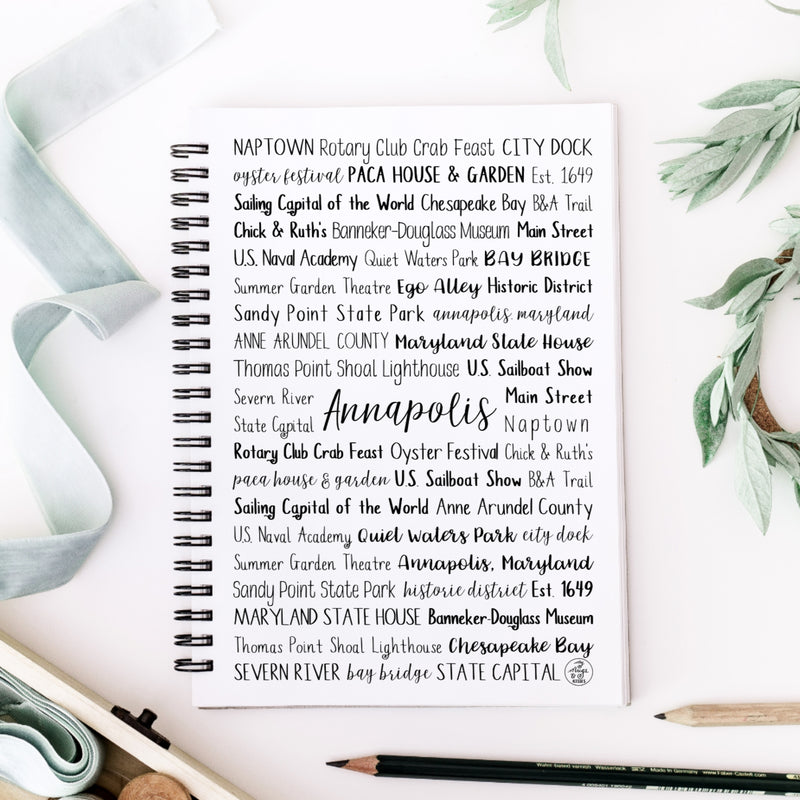 NAPTOWN Rotary Club Crab Feast CITY DOCK
oyster festival PACA HOUSE & GARDEN Est. 1649
Sailing Capital of the World Chesapeake Bay B&A Trail
Chick & Ruth's Banneker-Douglass Museum Main Street
U.S. Naval Academy Quiet Waters Park BAY BRIDGE
Summer Garden Theatre Ego Alley Historic District
Sandy Point State Park annapolis, maryland
ANNE ARUNDEL COUNTY Maryland State House
Thomas Point Shoal Lighthouse U.S. Sailboat Show
Severn River Main Street
Annapolis
State Capital Naptown
Rotary Club Crab Feast Oyster Festival Chick & Ruth's
paca house & garden U.S. Sailboat Show B&A Trail
Sailing Capital of the World Anne Arundel County
U.S. Naval Academy Quiet Waters Park city dock
Summer Garden Theatre Annapolis, Maryland
Sandy Point State Park historic district Est. 1649
MARYLAND STATE HOUSE Banneker-Douglass Museum
Thomas Point Shoal Lighthouse Chesapeake Bay
SEVERN RIVER bay bridge STATE CAPITAL
Made in Germany www.Faber-Castell